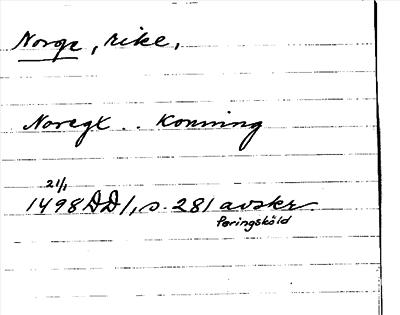 Norge, rike.
Noregx .. Konning
21/1
1498 DD 1, s. 281 avskr.
Peringsköld